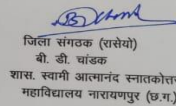 जिला संगठक (रासेयो)
बी. डी. चांडक
शास. स्वामी आत्मानंद स्नातकोत्तर
महाविद्यालय नारायणपुर (छ.ग.)